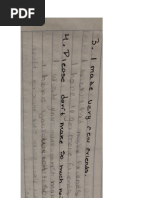 3. I make very few friends.
4. Please don't make so much